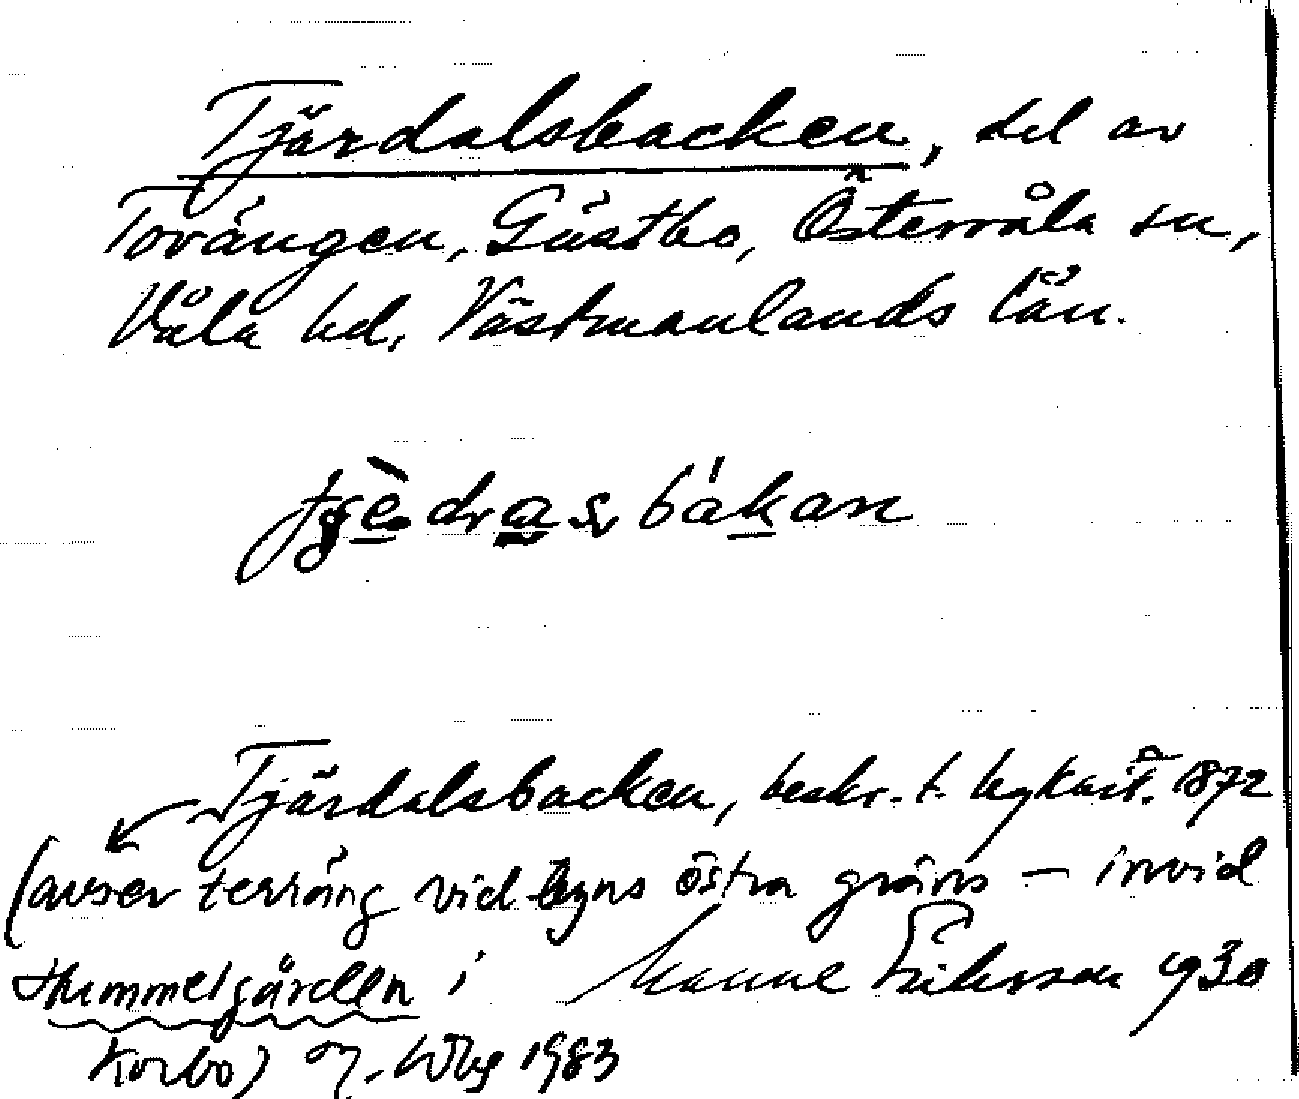 Tjärdalsbacken, del av
Torängen, Gästbo, Östervåla sn,
Våla hd, Västmanlands län.
tjèdrasbákan
Tjärdalsbacken, beskr. t. hgkart. 1872
(avser terräng vid byns östra gräns – invid
Hummelgården i Manne Eriksson 1930
Korbo) 1983